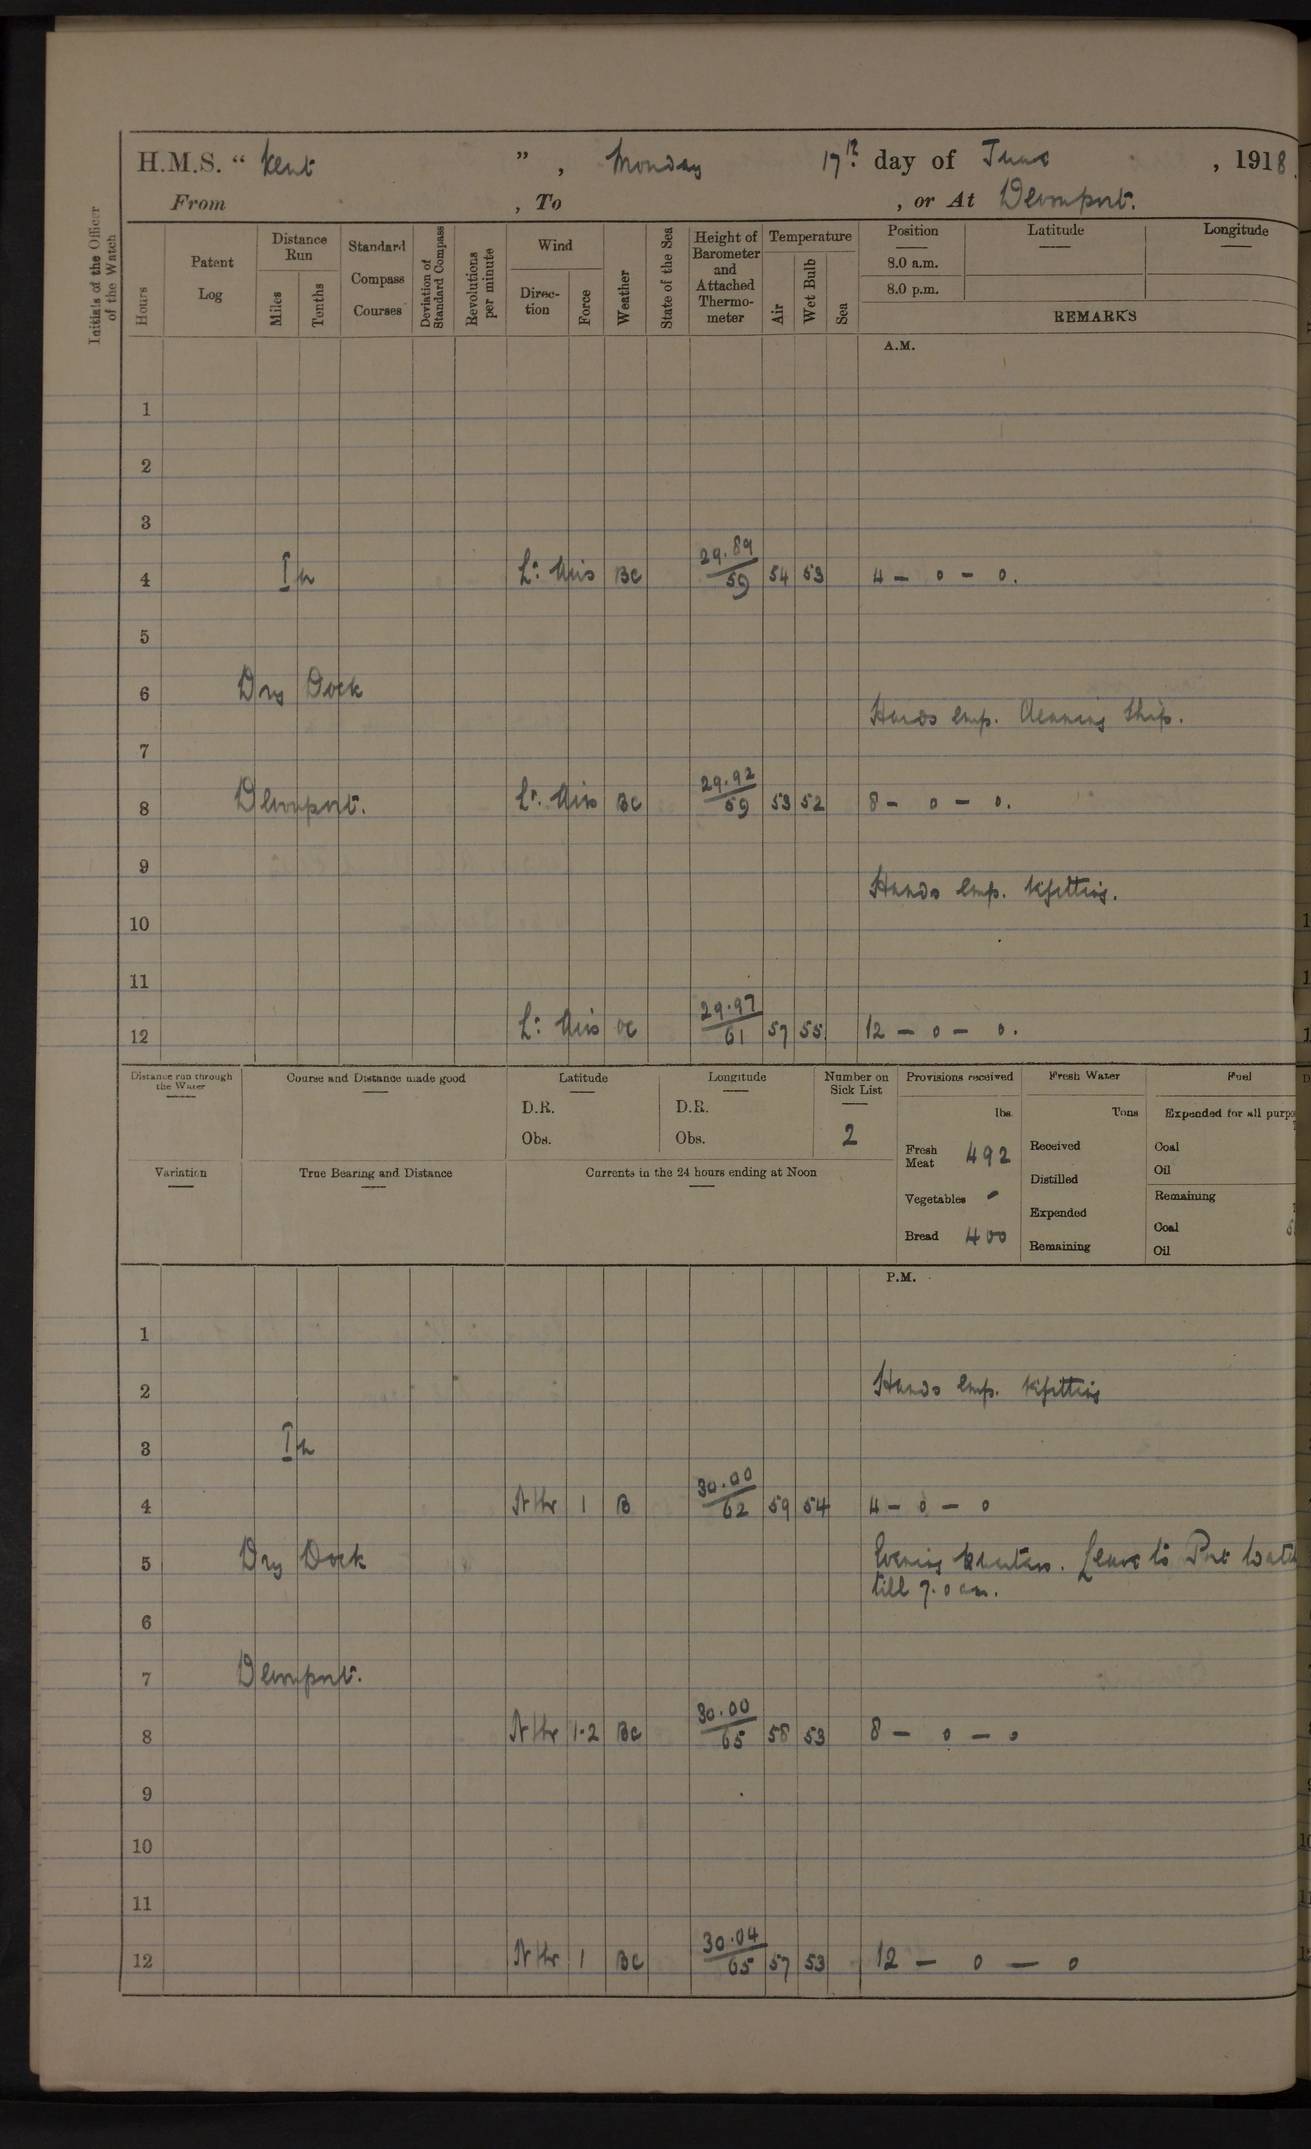 H.M.S. “ Kent ” , Monday 17th day of June , 1918.
From , To , or At Devonport.
Initials of the Officer of the Watch
Hours
Patent Log
Distance Run
Miles
Tenths
Standard Compass Courses
Deviation of Standard Compass
Revolutions per minute
Wind
Direction
Force
Weather
State of the Sea
Height of Barometer and Attached Thermometer
Temperature
Air
Wet Bulb
Sea
Position Latitude Longitude
8.0 a.m.
8.0 p.m.
REMARKS
A.M.
1
2
3
4 In Lt. Airs BC 29.89/59 54 53 4 – 0 – 0.
5
6 Dry Dock
Hands emp. Cleaning Ship.
7
8 Devonport. Lt. Airs BC 29.92/59 53 52 8 – 0 – 0.
9
Hands emp. refitting.
10
11
12 Lt. Airs OC 29.97/61 57 55 12 – 0 – 0.
Distance run through the Water
Course and Distance made good
Latitude
D.R.
Obs.
Longitude
D.R.
Obs.
Number on Sick List
2
Provisions received
lbs.
Fresh Meat 492
Vegetables -
Bread 400
Fresh Water
Tons
Received
Distilled
Expended
Remaining
Fuel
Expended for all
Coal
Oil
Remaining
Coal
Oil
Variation
True Bearing and Distance
Currents in the 24 hours ending at Noon
P.M.
1
2 Hands emp. refitting
3 In
4 Nthr 1 B 30.00/62 59 54 4 – 0 – 0
5 Dry Dock Evening Quarters. Leave to Port
till 7.0 am.
6
7 Devonport.
8 Nthr 1-2 BC 30.00/65 58 53 8 – 0 – 0
9
10
11
12 Nthr 1 BC 30.04/65 57 53 12 – 0 – 0